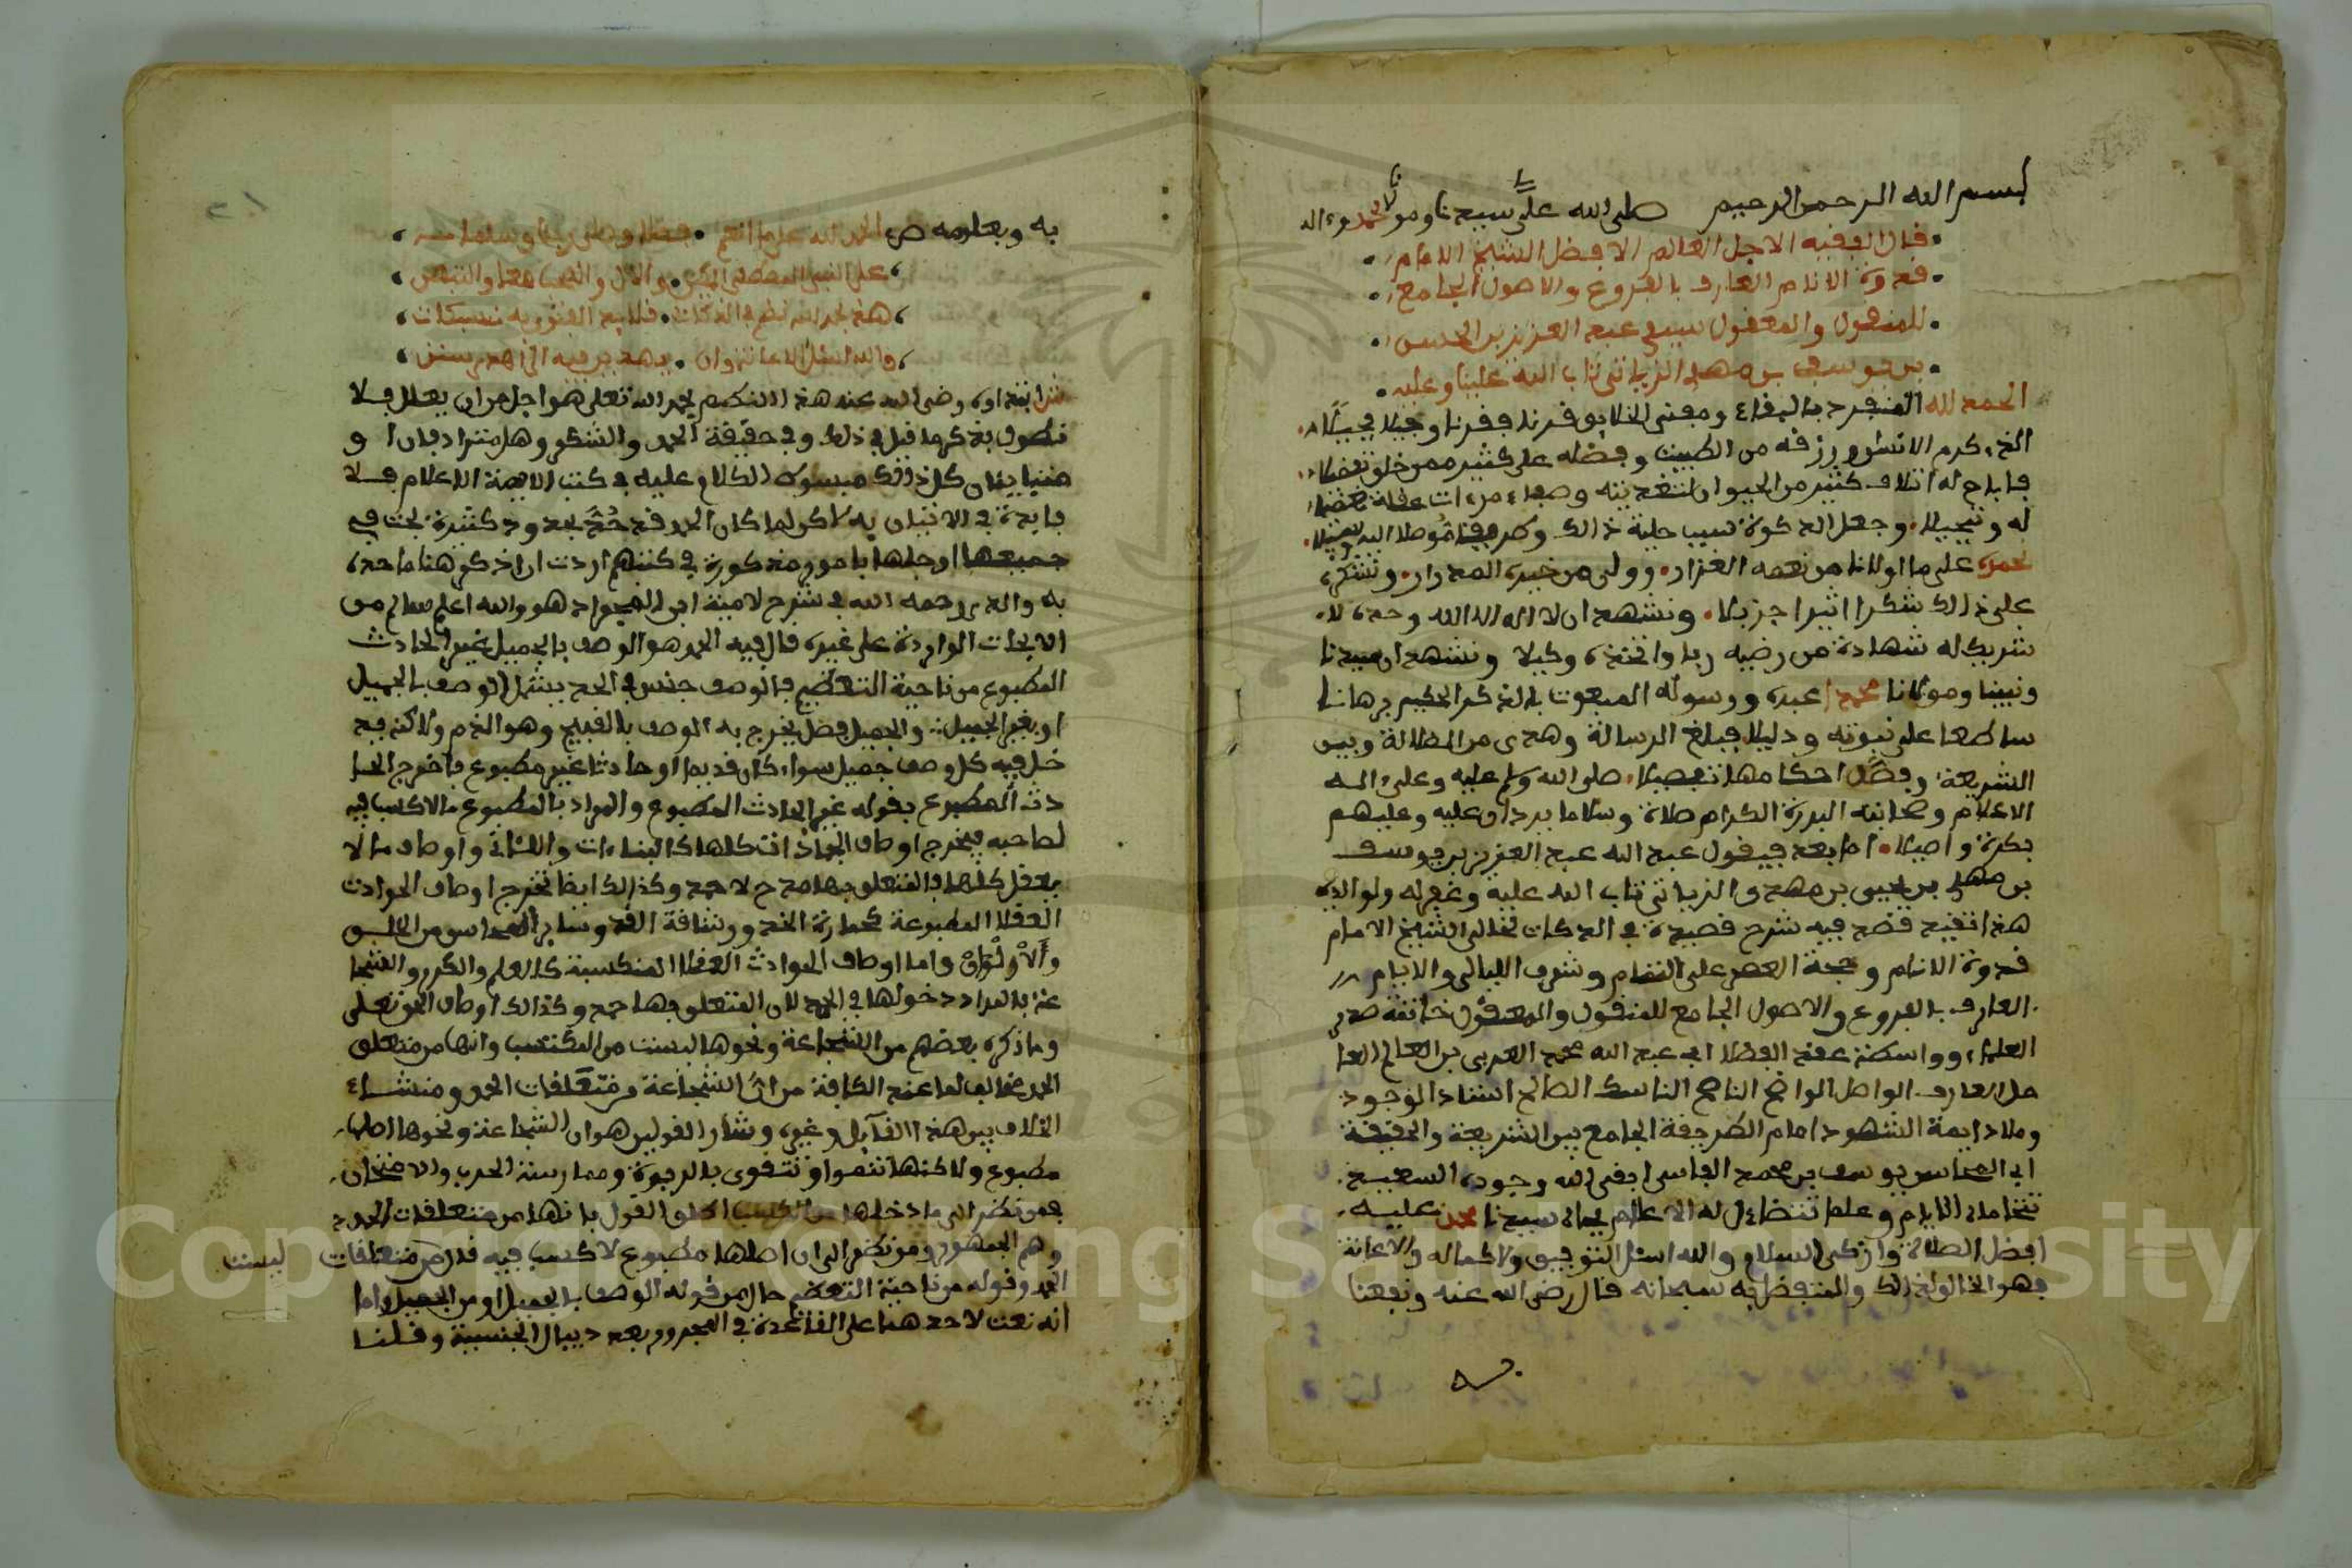 بسم الله الرحمن الرحيم صلى الله على سيدنا ومولانا محمد وءاله
قال الفقيه الاجل العالم الافضل الشيخ الامام
قدوة الانام العارف بالفروع والاصول الجامع
للمنقول والمعقول سيدي عبد العزيز بن الحسن
بن يوسف بن مهدي الزياتي تاب الله علينا وعليه
الحمد لله المنفرد بالبقاء ومفني الخلايق قرنا فقرنا وجيلا فجيلا
الذي كرم الانسان ورزقه من الطيبت وفضله على كثير ممن خلق تفضيلا
فاباح له اتلاف كثير من الحيوان لتغذيته
له وتبجيلا وجعل الذكوة سبب حلية ذالك
نحمده على ما اولانا من نعمه الغزار ووالى من خيره المدرار ونشكره
على ذالك شكرا اثيرا جزيلا ونشهد ان لا اله الا الله وحده لا
شريك له شهادة من رضيه ربا واتخذه وكيلا ونشهد ان سيدنا
ونبينا ومولانا محمدا عبده ورسوله المبعوث بالذكر الحكيم برهانا
ساطعا على نبوته ودليلا فبلغ الرسالة وهدى من الضلالة وبين
الشريعة وفصل احكامها تفصيلا صلى الله وسلم عليه وعلى ءاله
الاعلام وصحابته البررة الكرام صلاة وسلاما يردان عليه وعليهم
بكرة واصيلا اما بعد فيقول عبد الله عبد العزيز بن يوسف
بن مهدي بن يحيى بن مهدي الزياتي تاب الله عليه وغفر له ولوالديه
هذا تقييد قصد فيه شرح قصيدة في الذكات لخالي الشيخ الامام
قدوة الانام وحجة العصر على التمام وشرف الليالي والايام
العارف بالفروع والاصول الجامع للمنقول والمعقول خاتمة صدر
العلماء وواسطة عقد الفضلا ابي عبد الله محمد العربي بن العالم العا
مل العارف الواصل الواضح الناصح الناسك الصالح استاذ الوجود
وملاذ ايمة الشهود امام الطريقة الجامع بين الشريعة والحقيقة
ابي المحاسن يوسف بن محمد الفاسي ابقى الله وجوده السعيد
تتحاماه الايام وعلما تتضاءل له الاعلام بجاه سيدنا محمد عليه
افضل الصلاة وازكى السلام والله اسئل التوفيق ولاكماله والاعانة
فهو الخالق لذالك والمتفضل به سبحانه قال رضي الله عنه ونفعنا
به وبعلومه ص الحمد لله على ما انعم فضلا وصلى ربنا وسلما
على النبي المصطفى والال والصحب معا والتبعين
هذا بحمد الله نظم في الذكات
والله اسئل الاعانة وان يهدين فيه الى اهدى سنن
ش ابتداوه رضي الله عنه هذا النظم بحمد الله تعلى هو اجل من ان يعلل فلا
نطول بذكر ما قيل في ذلك وفي حقيقة الحمد والشكر وهل مترادفان او
متباينان كل ذلك مبسوط الكلام عليه في كتب الايمة الاعلام فلا
فايدة في الاتيان به لاكن لما كان الحمد قد حد بحدود كثيرة بحث في
جميعها او جلها بامور مذكورة في كتبهم اردت ان اذكر هنا ما حده
به والدي رحمه الله في شرح لامية ابن المجراد هو والله اعلم سالم من
الابحاث الواردة على غيره قال فيه الحمد هو الوصف بالجميل غير الحادث
المطبوع من ناحية التعظيم فالوصف جنس في الحد يشمل الوصف بالجميل
او بغير الجميل والجميل فصل يخرج به الوصف بالقبيح وهو الذم ولاكنه قد
خل فيه كل وصف جميل سواء كان قديما او حادثا غير مطبوع فاخرج الحا
دث المطبوع بقوله غير الحادث المطبوع والمراد بالمطبوع ما لا كسب فيه
لصاحبه فيخرج اوصاف الجمادات كلها
يعقل كلها فالمتعلق بها مدح لا حمد وكذالك ايضا تخرج اوصاف الحوادث
العقلا المطبوعة كحمارة الخد ورشاقة القد وساير المحاسن من الخلق
واما اوصاف الحوادث العقلا المكتسبة كالعلم والكرم والشجا
عة فالمراد دخولها في الحمد لان المتعلق بها حمد وكذالك اوصاف الحق تعلى
وما ذكره بعضهم من الشجاعة ونحوها ليست من المكتسب وانها من متعلق
الحمد مخالف لما عند الكافة من ان الشجاعة من متعلقات الحمد ومنشاء
الخلاف بين هذا القآيل وغيره ومثار القولين هو ان الشجاعة ونحوها اصلها
مطبوع ولاكنها تنموا وتتقوى بالدربة وممارسة الحرب والامتحان
فمن نظر الى ما دخلها من الكسب اطلق القول بانها من متعلقات الحمد
وهم الجمهور ومن نظر الى ان اصلها مطبوع لا كسب فيه قال من متعلقات
ليست
الحمد وقوله من ناحية التعظيم حال من قوله الوصف بالجميل او من الجميل واما
انه نعت لاحدهما على القاعدة في المجرور بعد ذي ال الجنسية وقلنا